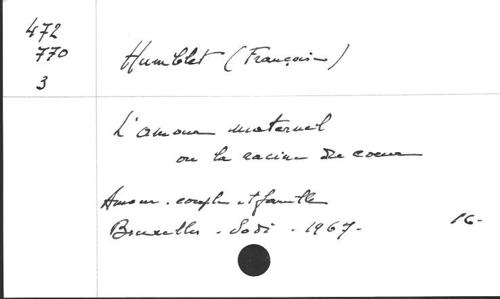 472
770
3
Humblet (François)
L'amour maternel
ou la racine du coeur
Amour. couple et famille
Bruxelles - Sodi - 1967-
16-